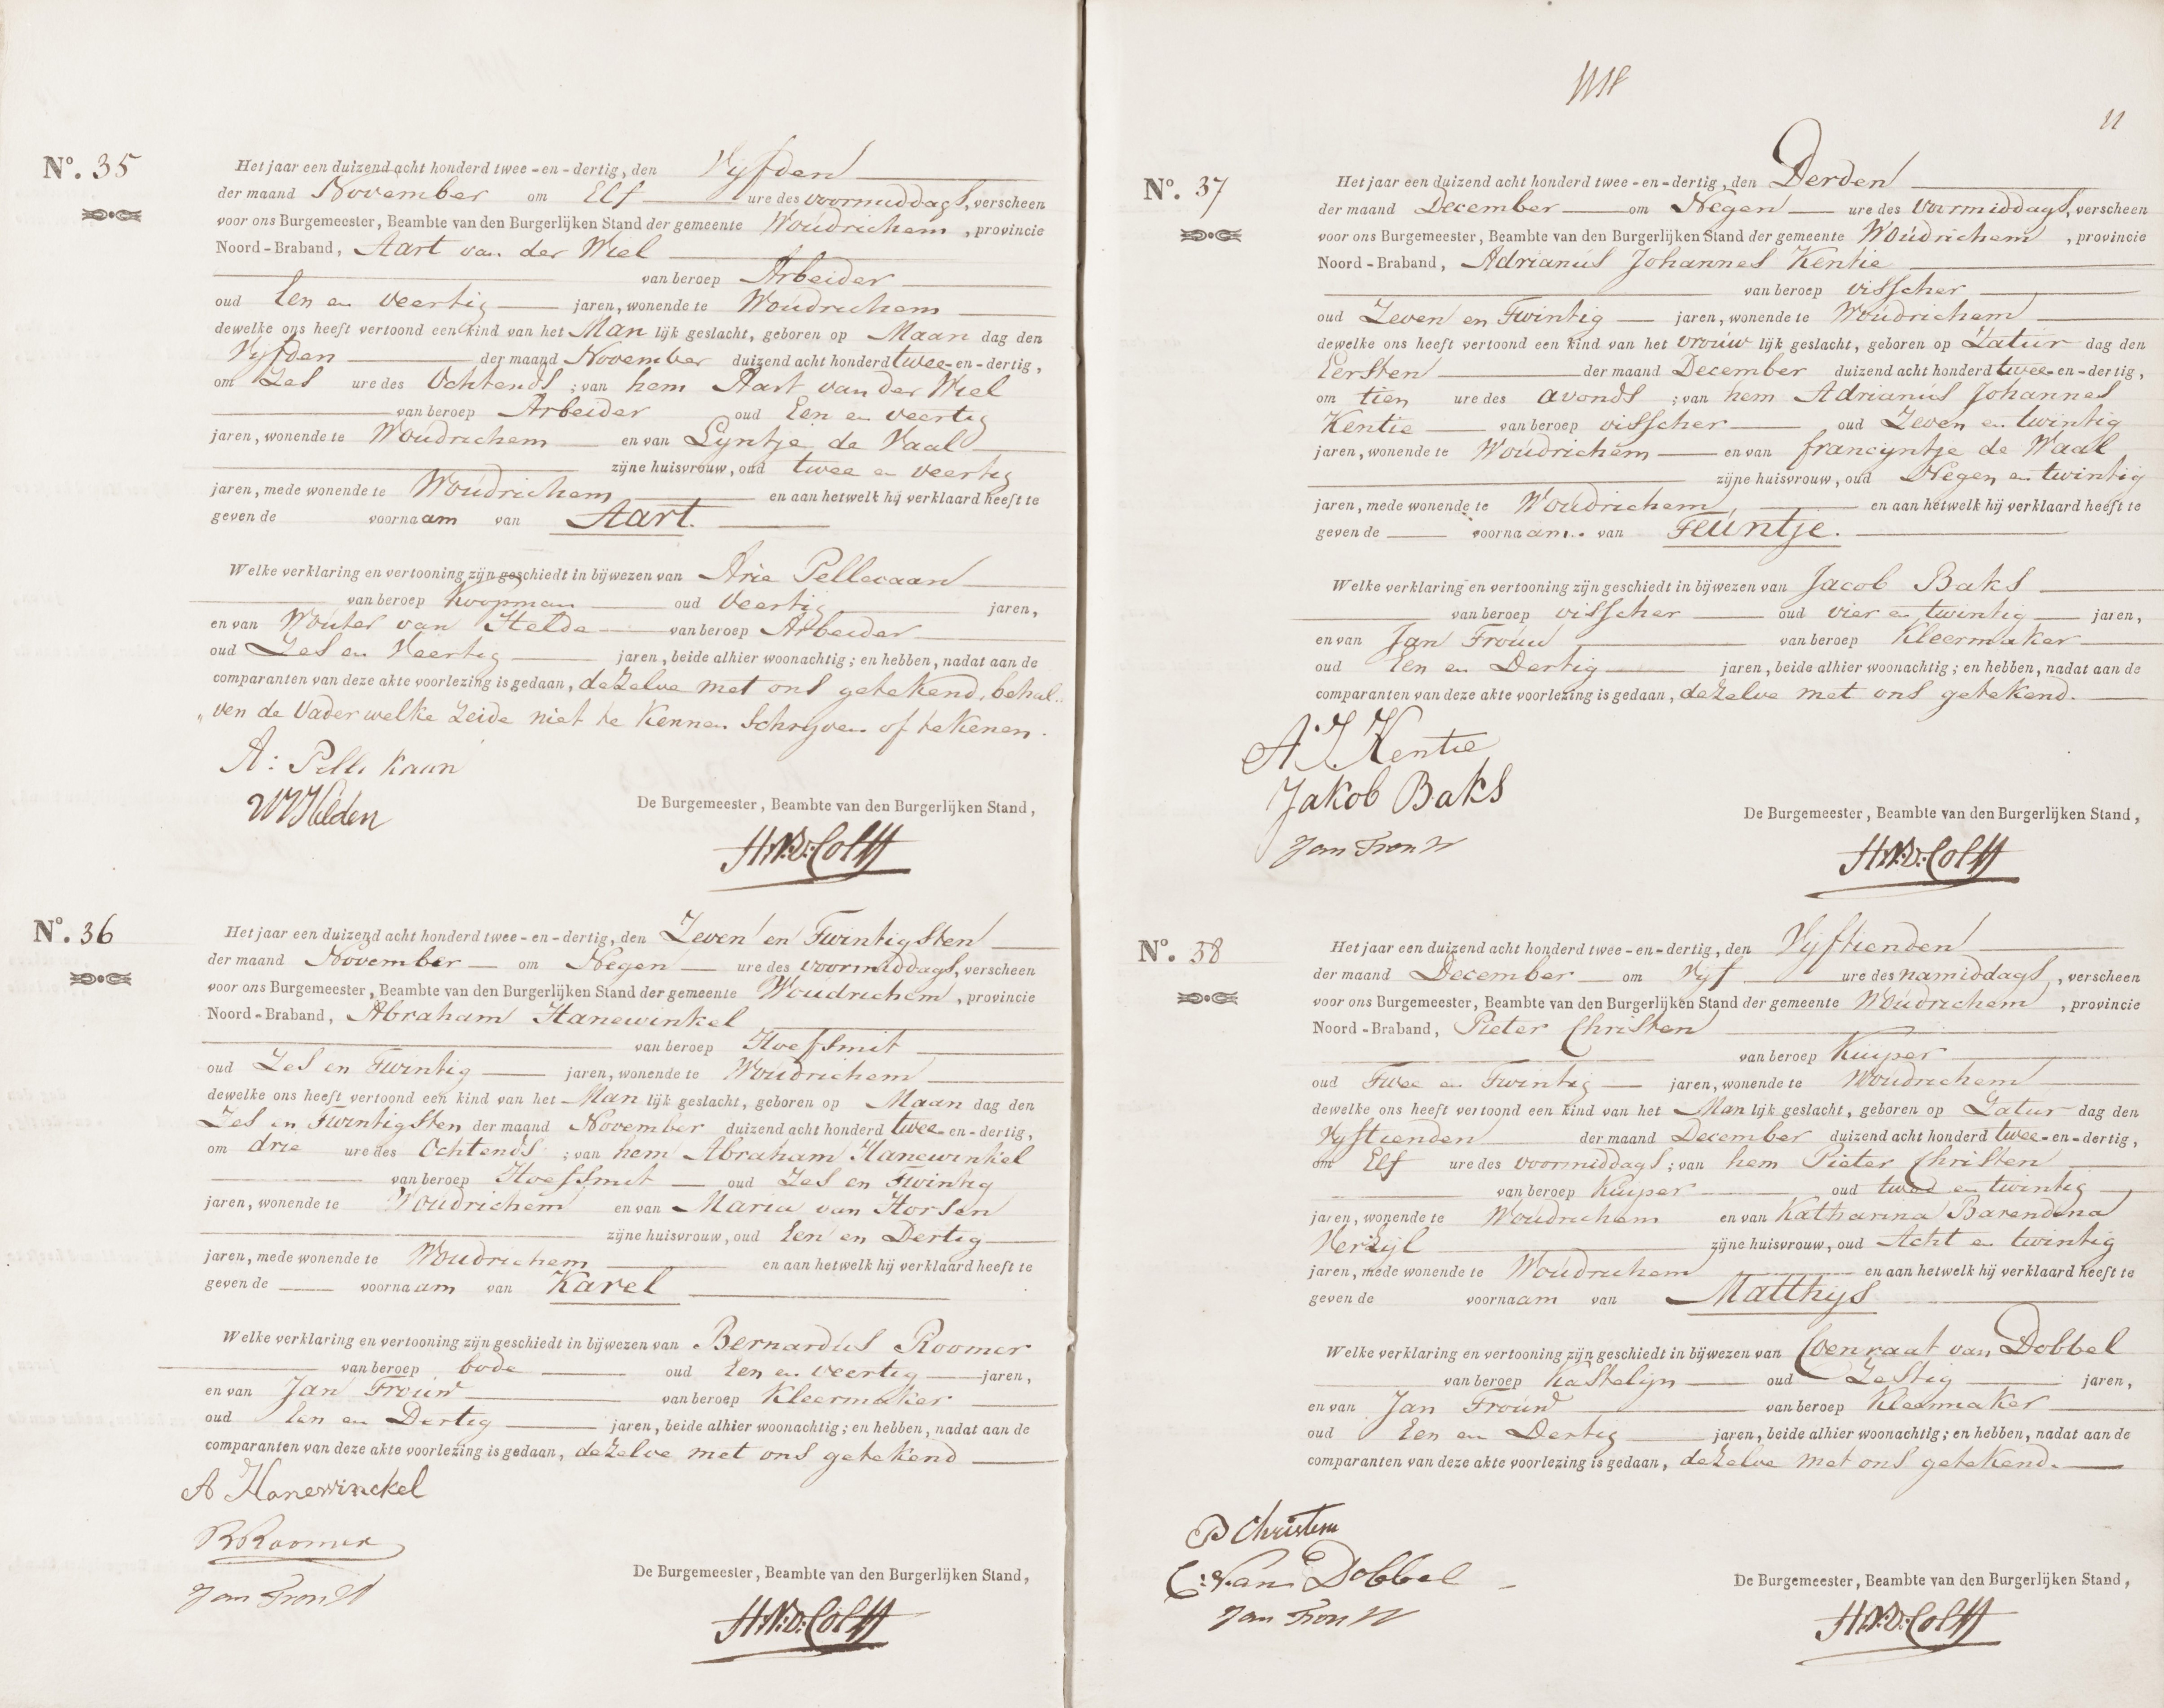 Nº. 35
Het jaar een duizend acht honderd twee-en-dertig, den Vyfden
der maand November om Elf ure des voormiddags, verscheen
voor ons Burgemeester, Beambte van den Burgerlijken Stand der gemeente Woudrichem, provincie
Noord-Braband, Aart van der Wiel
van beroep Arbeider
oud Een en Veertig jaren, wonende te Woudrichem
dewelke ons heeft vertoond een kind van het Man lijk geslacht, geboren op Maan dag den
Vyfden der maand November duizend acht honderd twee-en-dertig,
om Zes ure des Ochtends ; van hem Aart van der Wiel
van beroep Arbeider oud Een en Veertig
jaren, wonende te Woudrichem en van Lyntje de Vaal
zijne huisvrouw, oud twee en veertig
jaren, mede wonende te Woudrichem en aan hetwelk hij verklaard heeft te
geven de voornaam van Aart.
Welke verklaring en vertooning zijn geschiedt in bijwezen van Arie Pellecaan
van beroep Koopman oud Veertig jaren,
en van Wouter van Helde van beroep Arbeider
oud Zes en Veertig jaren, beide alhier woonachtig; en hebben, nadat aan de
comparanten van deze akte voorlezing is gedaan, dezelve met ons getekend, behal..
„ven de Vader welke Zeide niet te Kennen Schryven of tekenen.
A: Pelle kaan
WVHelden
De Burgemeester, Beambte van den Burgerlijken Stand,
Nº. 36
Het jaar een duizend acht honderd twee-en-dertig, den Zeven en Twintigsten
der maand November om Negen ure des voormiddags, verscheen
voor ons Burgemeester, Beambte van den Burgerlijken Stand der gemeente Woudrichem, provincie
Noord-Braband, Abraham Hanewinkel
van beroep Hoefsmit
oud Zes en Twintig jaren, wonende te Woudrichem
dewelke ons heeft vertoond een kind van het Man lijk geslacht, geboren op Maan dag den
Zes en Twintigsten der maand November duizend acht honderd twee-en-dertig,
om drie ure des Ochtends ; van hem Abraham Hanewinkel
van beroep Hoefsmit oud Zes en Twintig
jaren, wonende te Woudrichem en van Maria van Horsen
zijne huisvrouw, oud Een en Dertig
jaren, mede wonende te Woudrichem en aan hetwelk hij verklaard heeft te
geven de voornaam van Karel
Welke verklaring en vertooning zijn geschiedt in bijwezen van Bernardus Roomer
van beroep bode oud Een en Veertig jaren,
en van Jan Trouw van beroep Kleermaker
oud Een en Dertig jaren, beide alhier woonachtig; en hebben, nadat aan de
comparanten van deze akte voorlezing is gedaan, dezelve met ons getekend
A Hanewinckel
BRoomer
Jan Trouw
De Burgemeester, Beambte van den Burgerlijken Stand,
11
Nº. 37
Het jaar een duizend acht honderd twee-en-dertig, den Derden
der maand December om Negen ure des Voormiddags, verscheen
voor ons Burgemeester, Beambte van den Burgerlijken Stand der gemeente Woudrichem, provincie
Noord-Braband, Adrianus Johannes Kentie
van beroep visscher
oud Zeven en Twintig jaren, wonende te Woudrichem
dewelke ons heeft vertoond een kind van het vrouw lijk geslacht, geboren op Zatur dag den
Eersten der maand December duizend acht honderd twee-en-dertig,
om tien ure des avonds ; van hem Adrianus Johannes
Kentie van beroep visscher oud Zeven en twintig
jaren, wonende te Woudrichem en van francyntje de Waal
zijne huisvrouw, oud Negen en twintig
jaren, mede wonende te Woudrichem, en aan hetwelk hij verklaard heeft te
geven de voornaam.. van Teuntje.
Welke verklaring en vertooning zijn geschiedt in bijwezen van Jacob Baks
van beroep visscher oud vier en twintig jaren,
en van Jan Trouw van beroep Kleermaker
oud Een en Dertig jaren, beide alhier woonachtig; en hebben, nadat aan de
comparanten van deze akte voorlezing is gedaan, dezelve met ons getekend.
A.J. Kentie
Jakob Baks
Jan Trouw
De Burgemeester, Beambte van den Burgerlijken Stand,
Nº. 38
Het jaar een duizend acht honderd twee-en-dertig, den Vyftienden
der maand December om Vyf ure des namiddags, verscheen
voor ons Burgemeester, Beambte van den Burgerlijken Stand der gemeente Woudrichem, provincie
Noord-Braband, Pieter Christen
van beroep Kuiper
oud Twee en Twintig jaren, wonende te Woudrichem
dewelke ons heeft vertoond een kind van het Man lijk geslacht, geboren op Zatur dag den
Vyftienden der maand December duizend acht honderd twee-en-dertig,
om Elf ure des voormiddags ; van hem Pieter Christen
van beroep Kuiper oud twee en twintig
jaren, wonende te Woudrichem en van Katharina Barendina
Verzyl zijne huisvrouw, oud Acht en twintig
jaren, mede wonende te Woudrichem en aan hetwelk hij verklaard heeft te
geven de voornaam van Matthys
Welke verklaring en vertooning zijn geschiedt in bijwezen van Coenraat van Dobbel
van beroep Kastelyn oud Zestig jaren,
en van Jan Trouw van beroep Kleermaker
oud Een en Dertig jaren, beide alhier woonachtig; en hebben, nadat aan de
comparanten van deze akte voorlezing is gedaan, dezelve met ons getekend.
P Christen
C: Van Dobbel
Jan Trouw
De Burgemeester, Beambte van den Burgerlijken Stand,